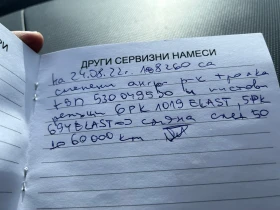 РИ
ДРУГИ СЕРВИЗНИ НАМЕСИ
на 24.08.22. 188260 са
сменени ангр. р-к тролка
530049530 и пистови
ремъци 6PK 1019 ELAST, 5PK
694 ELAST → смяна след 50
до 60000 km